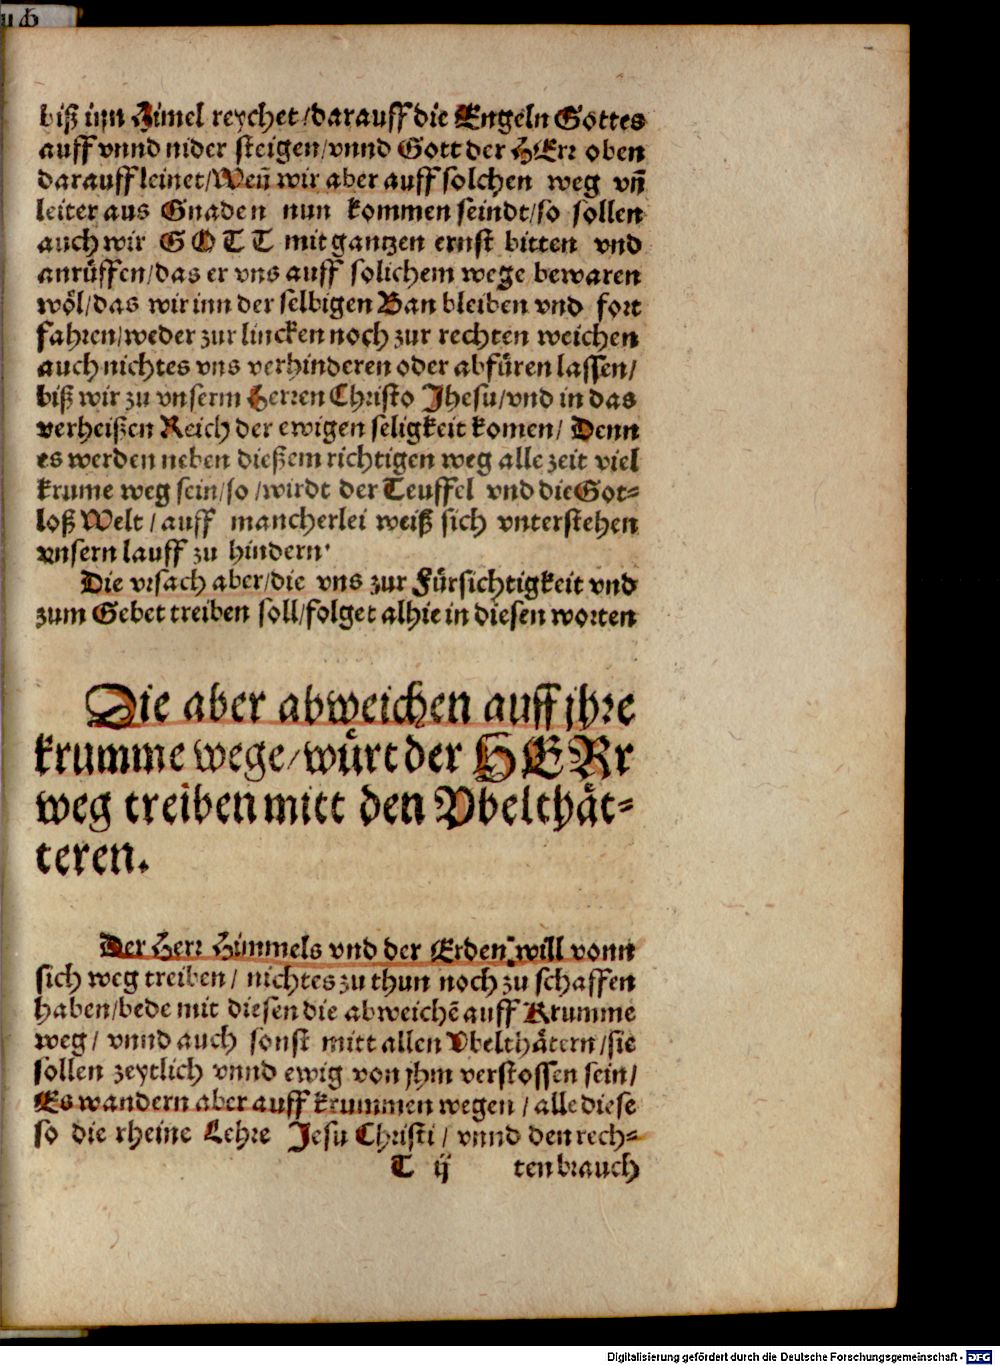 biß inn Himel reychet/darauff die Engeln Gottes
auff vnnd nider steigen/vnnd Gott der HErr oben
darauff leinet/Weñ wir aber auff solchen weg vñ
leiter aus Gnaden nun kommen seindt/so sollen
auch wir GOTT mit gantzen ernst bitten vnd
anrüffen/das er vns auff solichem wege bewaren
wöl/das wir inn der selbigen Ban bleiben vnd fort
fahren/weder zur lincken noch zur rechten weichen
auch nichtes vns verhinderen oder abfüren lassen/
biß wir zu vnserm Herren Christo Jhesu/vnd in das
verheißen Reich der ewigen seligkeit komen/ Denn
es werden neben dießem richtigen weg alle zeit viel
krume weg sein/so/wirdt der Teuffel vnd die Got-
loß Welt/auff mancherlei weiß sich vnterstehen
vnsern lauff zu hindern.
Die vrsach aber/die vns zur Fürsichtigkeit vnd
zum Gebet treiben soll/folget alhie in diesen worten
Die aber abweichen auff jhre
krumme wege/würt der HERr
weg treiben mitt den Vbelthät-
teren.
Der Herr Himmels vnd der Erden will vonn
sich weg treiben/ nichtes zu thun noch zu schaffen
haben/bede mit diesen die abweichẽ auff Krumme
weg/ vnnd auch sonst mitt allen Vbelthätern/sie
sollen zeytlich vnnd ewig von jhm verstossen sein/
Es wandern aber auff krummen wegen/alle diese
so die rheine Lehre Jesu Christi/ vnnd den rech-
T ij ten brauch
Digitalisierung gefördert durch die Deutsche Forschungsgemeinschaft - DFG